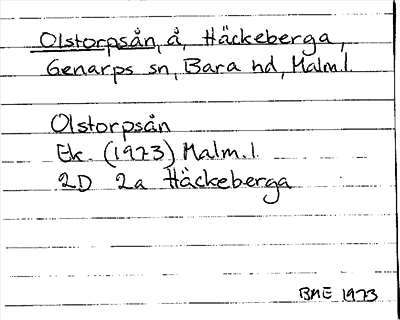 Olstorpsån, å, Häckeberga,
Genarps sn, Bara hd, Malm.l.
Olstorpsån
Ek. (1973) Malm.l
2D 2a Häckeberga
BME 1973